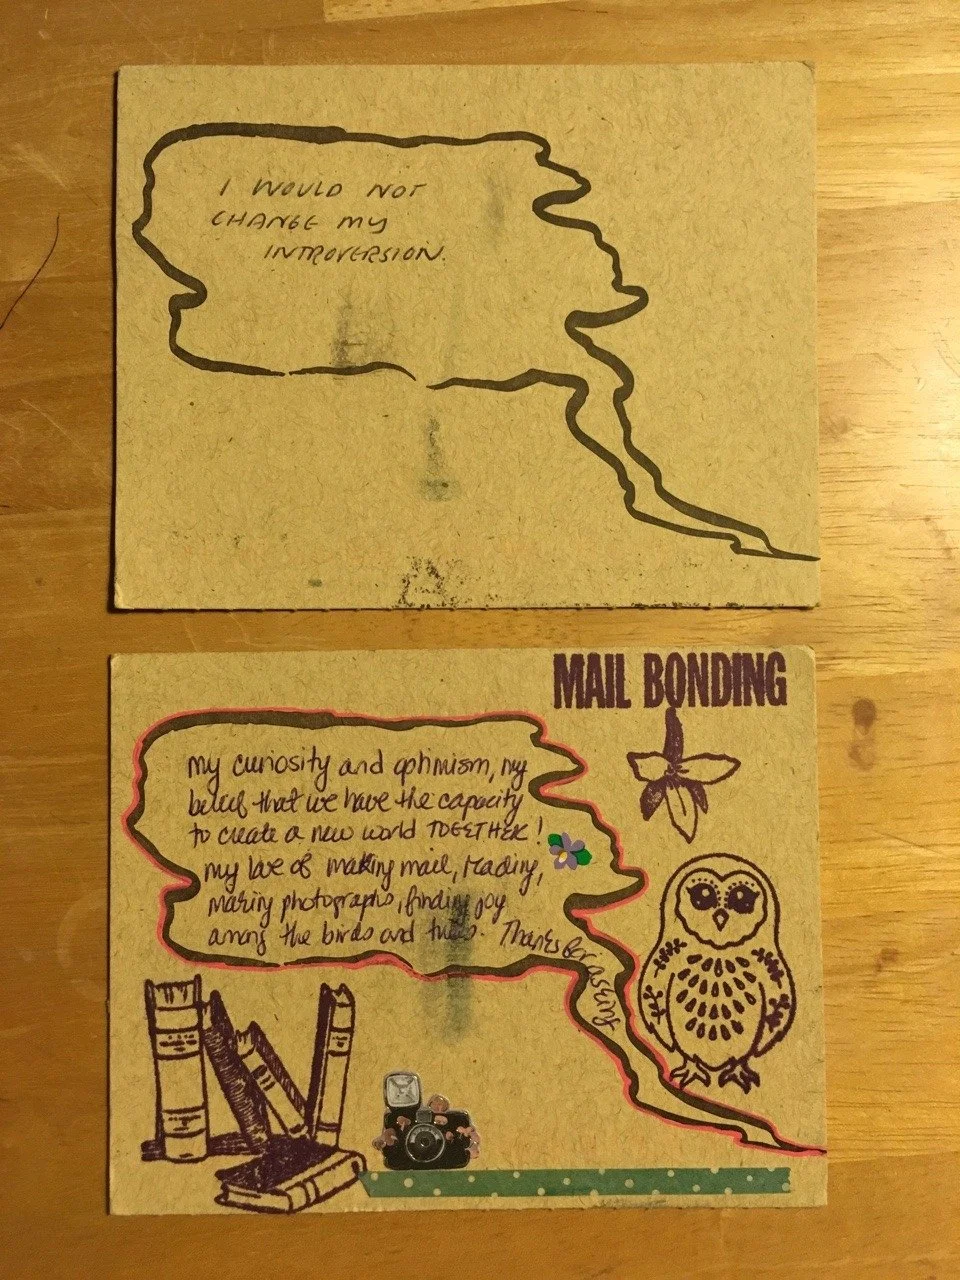 I WOULD NOT
CHANGE MY
INTROVERSION.
MAIL BONDING
my curiosity and optimism, my
belief that we have the capacity
to create a new world TOGETHER!
my love of making mail, reading,
making photographs, finding joy
among the birds and trees. Thanks for asking